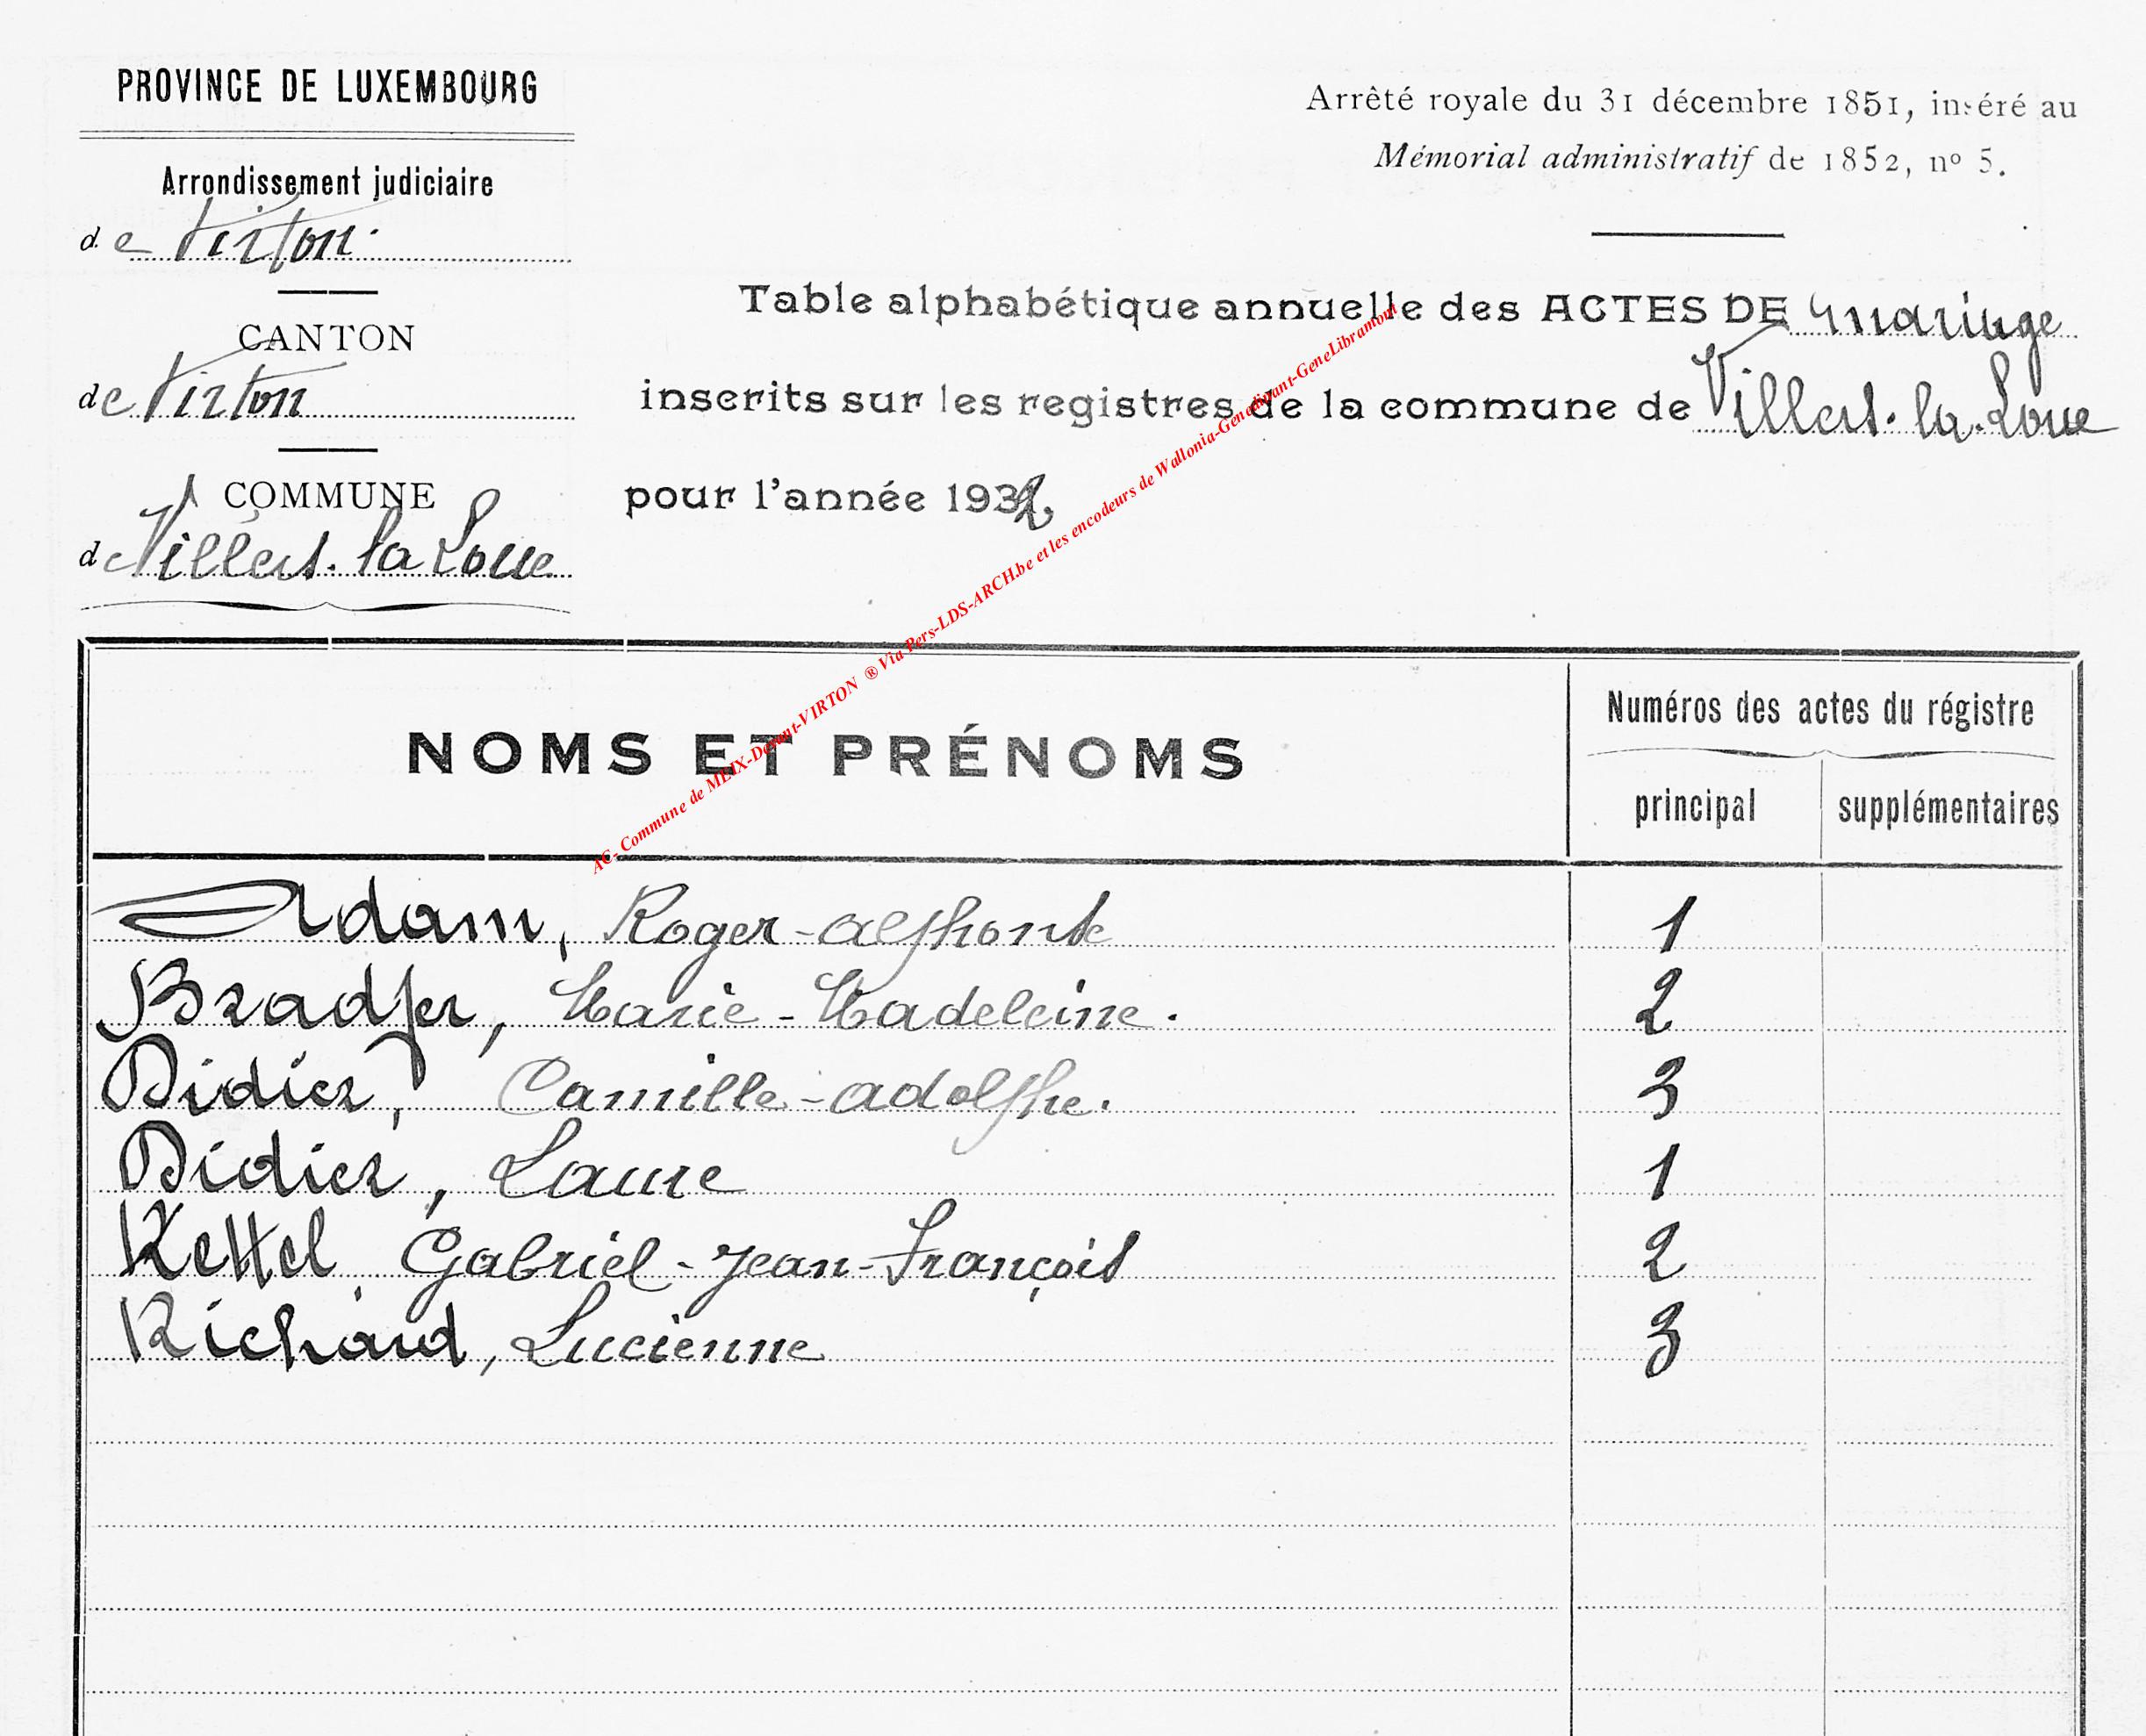 PROVINCE DE LUXEMBOURG
Arrondissement judiciaire
de Virton.
CANTON
de Virton
COMMUNE
de Villers-la Loue
Arrêté royale du 31 décembre 1851, inséré au
Mémorial administratif de 1852, nº 5.
Table alphabétique annuelle des ACTES DE mariage
inscrits sur les registres de la commune de Villers-la-Loue
pour l'année 1932.
AC- Commune de MEIX-Devant-VIRTON ® Via Pers-LDS-ARCH.be et les encodeurs de Wallonia-Genedinant-GeneLibramont
NOMS ET PRÉNOMS
Numéros des actes du régistre
principal supplémentaires
Adam, Roger-Alphonse 1
Bradfer, Marie-Madeleine. 2
Didier, Camille-Adolphe. 3
Didier, Laure 1
Kettel, Gabriel-Jean-François 2
Richard, Lucienne 3